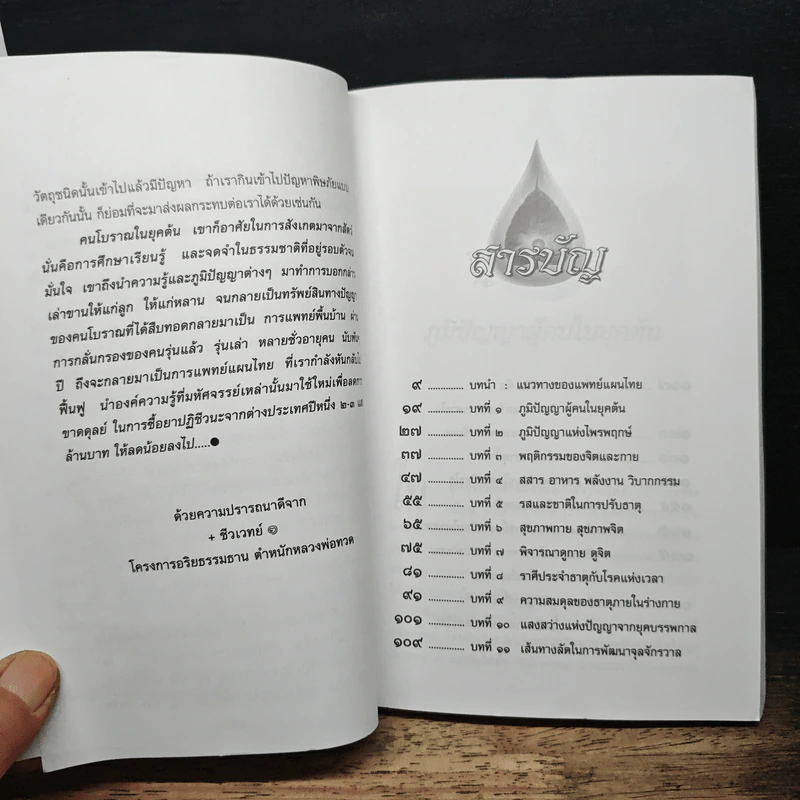 วัตถุชนิดนั้นเข้าไปแล้วมีปัญหา ถ้าเรากินเข้าไปปัญหาพิษภัยแบบ
เดียวกันนั้น ก็ย่อมที่จะมาส่งผลกระทบต่อเราได้ด้วยเช่นกัน
คนโบราณในยุคต้น เขาก็อาศัยในการสังเกตมาจากสัตว์
นั่นคือการศึกษาเรียนรู้ และจดจำในธรรมชาติที่อยู่รอบตัวจน
มั่นใจ เขาถึงนำความรู้และภูมิปัญญาต่างๆ มาทำการบอกกล่าว
เล่าขานให้แก่ลูก ให้แก่หลาน จนกลายเป็นทรัพย์สินทางปัญญา
ของคนโบราณที่ได้สืบทอดกลายมาเป็น การแพทย์พื้นบ้าน ผ่าน
การกลั่นกรองของคนรุ่นแล้ว รุ่นเล่า หลายชั่วอายุคน นับพัน
ปี ถึงจะกลายมาเป็นการแพทย์แผนไทย ที่เรากำลังหันกลับไป
ฟื้นฟู นำองค์ความรู้ที่มหัศจรรย์เหล่านั้นมาใช้ใหม่เพื่อลดการ
ขาดดุลย์ ในการซื้อยาปฏิชีวนะจากต่างประเทศปีหนึ่ง ๒-๓ แสน
ล้านบาท ให้ลดน้อยลงไป.....●
ด้วยความปรารถนาดีจาก
+ ชีวเวทย์
โครงการอริยธรรมธาน ตำหนักหลวงพ่อทวด
สารบัญ
๙ ............. บทนำ : แนวทางของแพทย์แผนไทย
๑๙ ............. บทที่ ๑ ภูมิปัญญาผู้คนในยุคต้น
๒๗ ............. บทที่ ๒ ภูมิปัญญาแห่งไพรพฤกษ์
๓๗ ............. บทที่ ๓ พฤติกรรมของจิตและกาย
๔๗ ............. บทที่ ๔ สสาร อาหาร พลังงาน วิบากกรรม
๕๕ ............. บทที่ ๕ รสและชาติในการปรับธาตุ
๖๕ ............. บทที่ ๖ สุขภาพกาย สุขภาพจิต
๗๕ ............. บทที่ ๗ พิจารณาดูกาย ดูจิต
๘๑ ............. บทที่ ๘ ราศีประจำธาตุกับโรคแห่งเวลา
๙๑ ............. บทที่ ๙ ความสมดุลของธาตุภายในร่างกาย
๑๐๑ ............. บทที่ ๑๐ แสงสว่างแห่งปัญญาจากยุคบรรพกาล
๑๐๙ ............. บทที่ ๑๑ เส้นทางลัดในการพัฒนาจุลจักรวาล